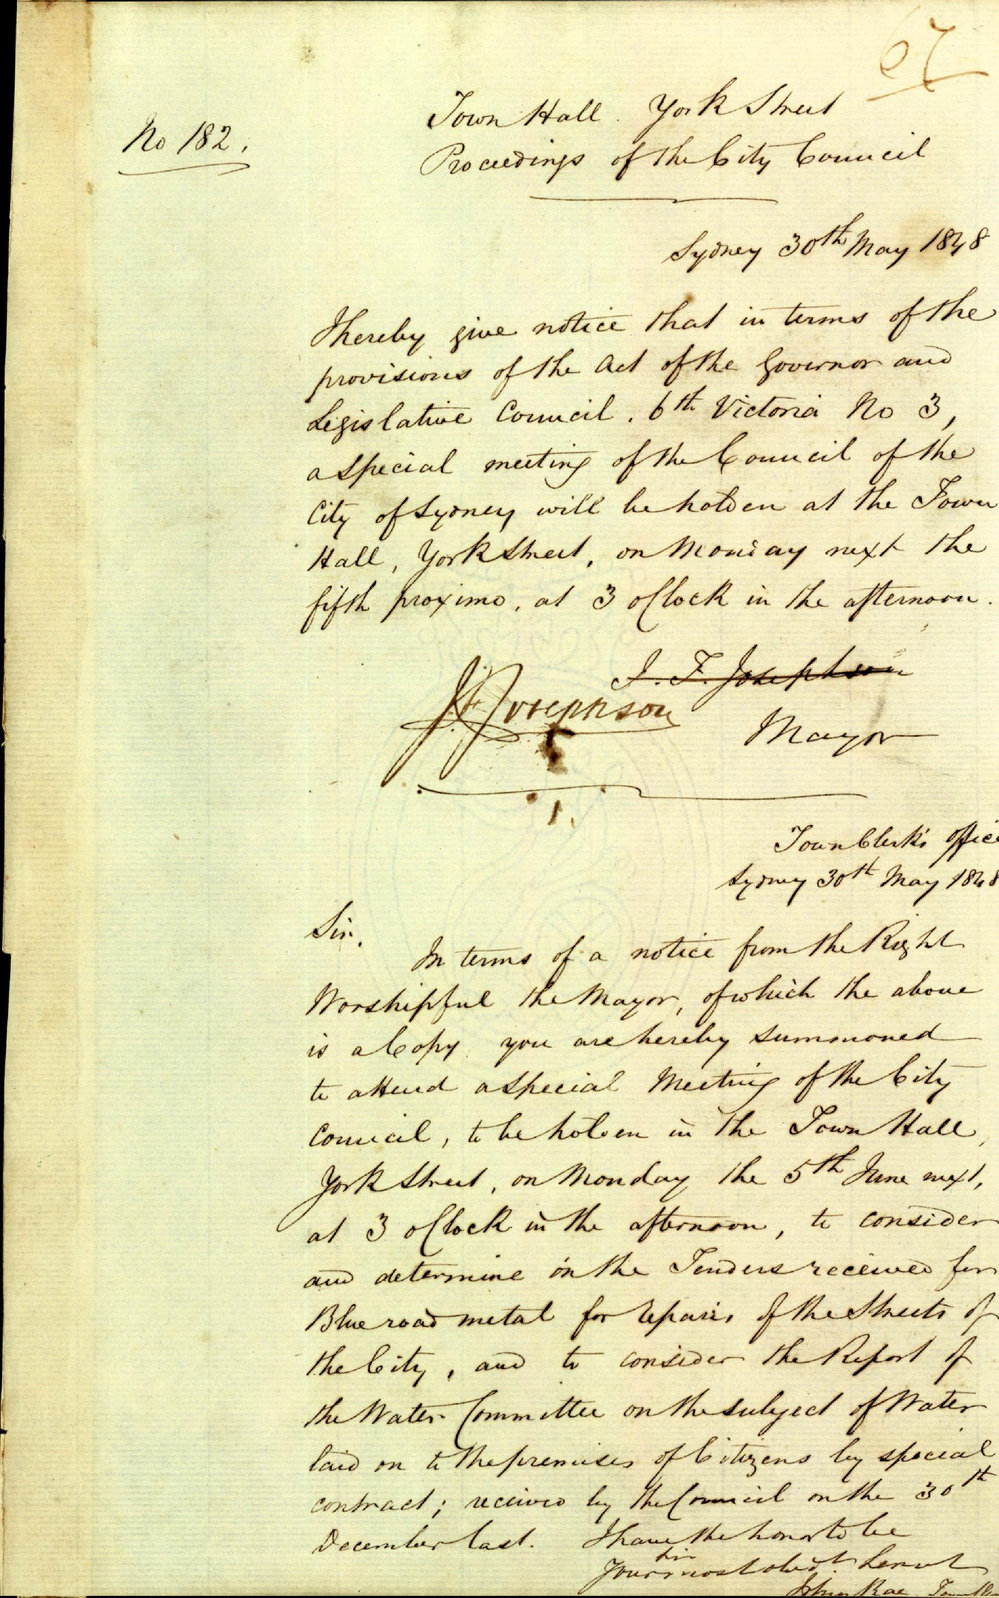 67
Town Hall. York Street
No 182.
Proceedings of the City Council
Sydney 30th May 1848
I hereby give notice that in terms of the
provisions of the Act of the Governor and
Legislative Council. 6th Victoria No 3,
a special meeting of the Council of the
City of Sydney will be holden at the Town
Hall, York Street, on Monday next the
fifth proximo, at 3 oClock in the afternoon.
J. F. Josephson
J F Josephson
Mayor
1.
Town Clerk's Office
Sydney 30th May 1848
Sir,
In terms of a notice from the Right
Worshipful the Mayor, of which the above
is a Copy you are hereby summoned
to attend a special Meeting of the City
Council, to be holden in the Town Hall,
York Street, on Monday the 5th June next,
at 3 oClock in the afternoon, to consider
and determine on the Tenders received for
Blue road metal for repairs of the Streets of
the City, and to consider the Report of
the Water Committee on the subject of Water
laid on to the premises of Citizens by special
contract; received by the Council on the 30th
December last. I have the honor to be
Sir
Your most obedt Servt
John Rae Town